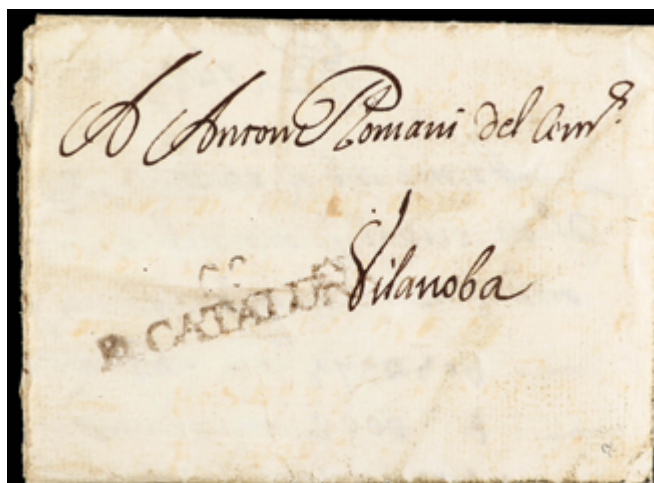 A Antoni Romani del Comṛ.
Vilanoba
B. CATALUÑ